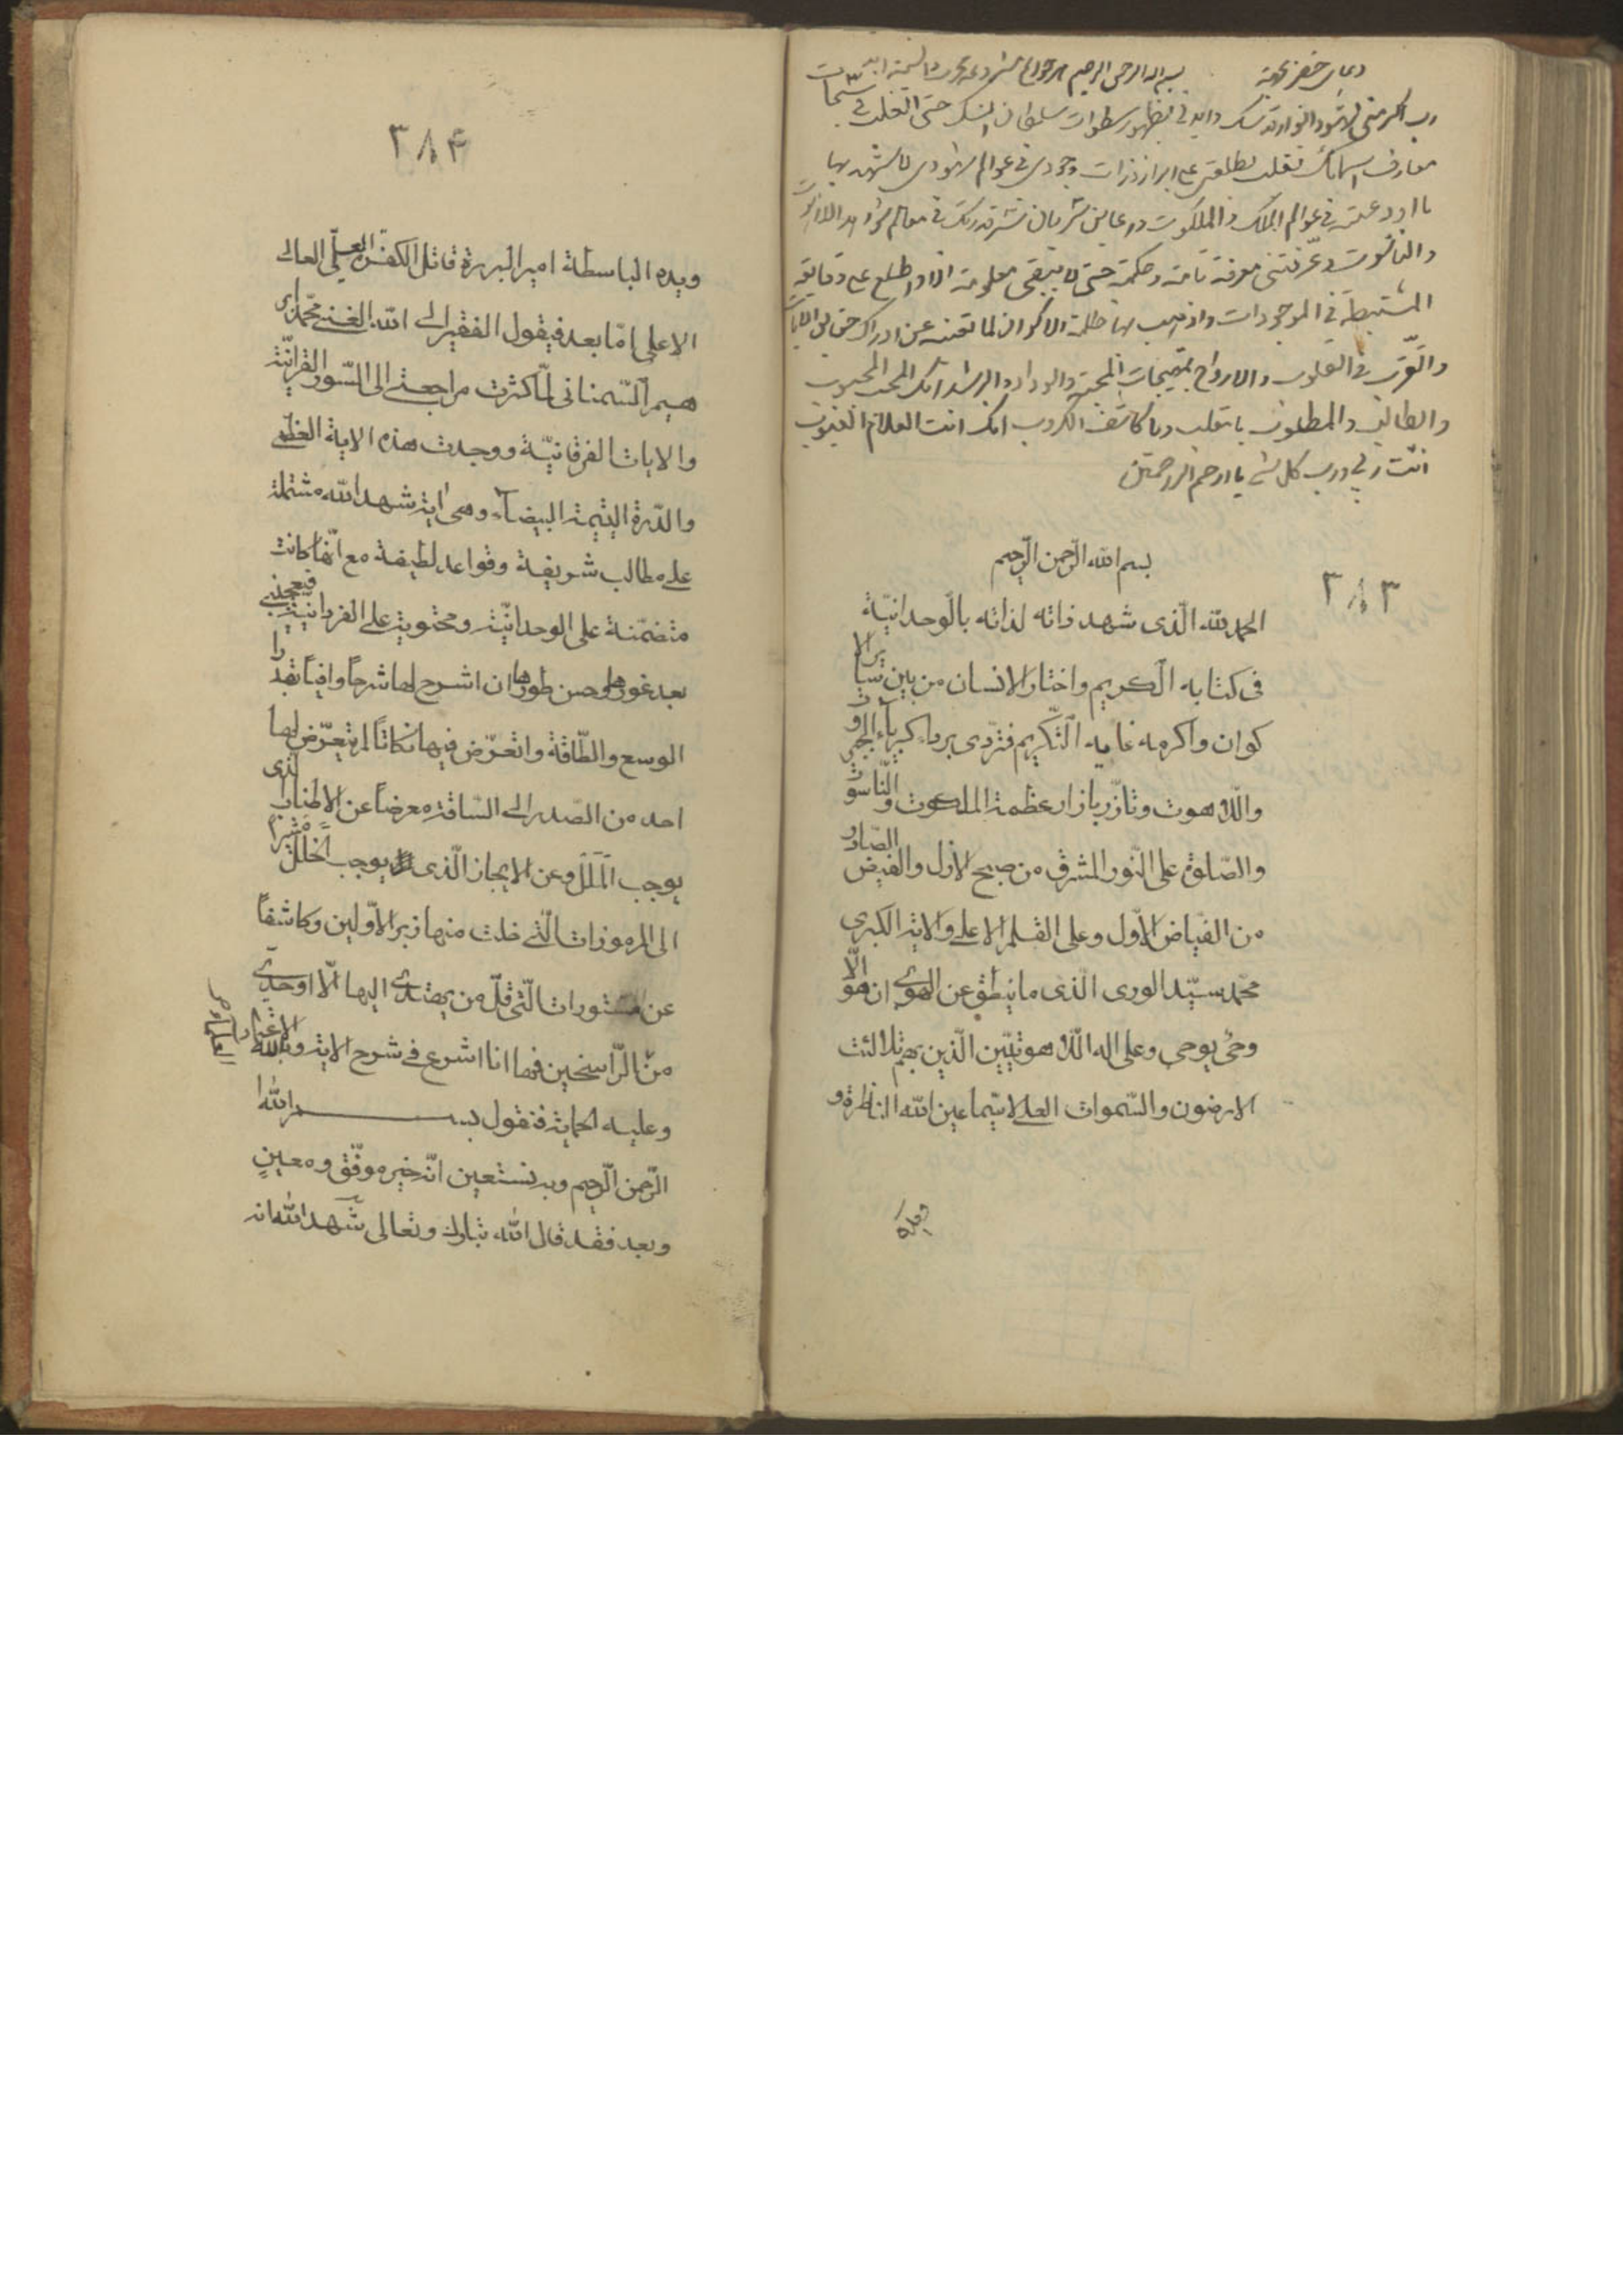 دعای خضر
بسم الله الرحمن الرحیم
رب اکرمنی بشهود انوار قدسک وایدنی بظهور سطوات سلطان انسک حتی اتقلب فی سبحات
معارف اسمائک تقلب یطلعنی علی اسرار ذرات وجودی فی عوالم شهودی لاشهد بها
ما اودعته فی عوالم الملک والملکوت واعاین سریان سر قدرتک فی معالم شواهد اللاهوت
والناسوت وعرفتنی معرفة تامة وحکمة حتی لا یبقی معلوم الا واطلع علی دقایقه
المستنبطة فی الموجودات واذهب بها ظلمة الاکوان المانعة عن ادراک حقایق الایات
والتصرف فی القلوب والارواح بمهیجات المحبة والوداد والرشد انک المحب المحبوب
والطالب والمطلوب یا مقلب ویا کاشف الکروب انک انت العلام الغیوب
انت ربی ورب کل شیء یا ارحم الراحمین
۳۸۳
بسم الله الرّحمن الرّحیم
الحمد لله الّذی شهد ذاته لذاته بالوحدانیّة
فی کتابه الکریم واختار الانسان من بین سایر الا
کوان واکرمه غایه التّکریم فتردّی برداء کبریاء الجبروت
واللّاهوت وتأزّر بازار عظمة الملکوت والنّاسوت
والصّلوة علی النّور المشرق من صبح الازل والفیض الصّادر
من الفیّاض الاوّل وعلی القلم الاعلی والایة الکبری
محمّد سیّد الوری الّذی ما ینطق عن الهوی ان هو الّا
وحی یوحی وعلی اله اللّاهوتیّین الّذین بهم تلالئت
الارضون والسّموات العلا لاسیّما عین الله الناظرة و
ویده
۳۸۴
ویده الباسطة امیر البررة قاتل الکفرة العلیّ العالی
الاعلی امّا بعد فیقول الفقیر الی الله الغنی محمّد ابرا
هیم السّمنانی لمّا کثرت مراجعتی الی السّور القرآنیّة
والایات الفرقانیّة ووجدت هذه الایة العظمی
والدّرة الیتیمة البیضاء وهی ایة شهد الله مشتملة
علی مطالب شریفة وقواعد لطیفة مع انّها کانت
متضمّنة علی الوحدانیّة ومحتویة علی الفردانیّة فیعجبنی
بعد غورها وحسن طورها ان اشرح لها شرحاً وافیاً بقدر
الوسع والطّاقة واتعرّض فیها نکاتاً لم یتعرّض لها
احد من الصّدر الی السّاقة معرضاً عن الاطناب الّذی
یوجب الملل وعن الایجاز الّذی یوجب الخلل مشیراً
الی المرموزات الّتی خلت منها زبر الاوّلین وکاشفاً
عن المستورات الّتی قلّ من یهتدی الیها الّا اوحدیّ
من الرّاسخین فها انا اشرع فی شرح الایة وبالله الاعتماد
وعلیه الحمایة فنقول بسم الله ا
لرّحمن الرّحیم وبه نستعین انّه خیر موفّق ومعین
وبعد فقد قال الله تبارک وتعالی شهد الله انه